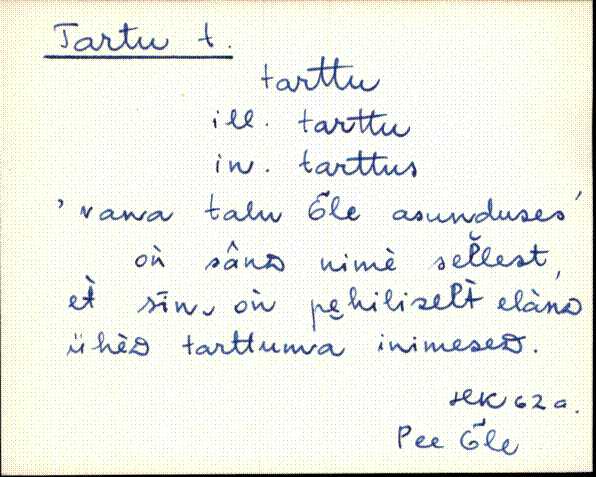 Tartu t.
tarttu
ill. tarttu
in. tarttus
'vana talu Õle asunduses'
oǹ sânᴅ nimè seľľest,
et̀ sīn, oǹ pȩhiliselt̀ elànᴅ
ühèᴅ tarttumα inimeseᴅ.
HK 62a.
Pee Õle